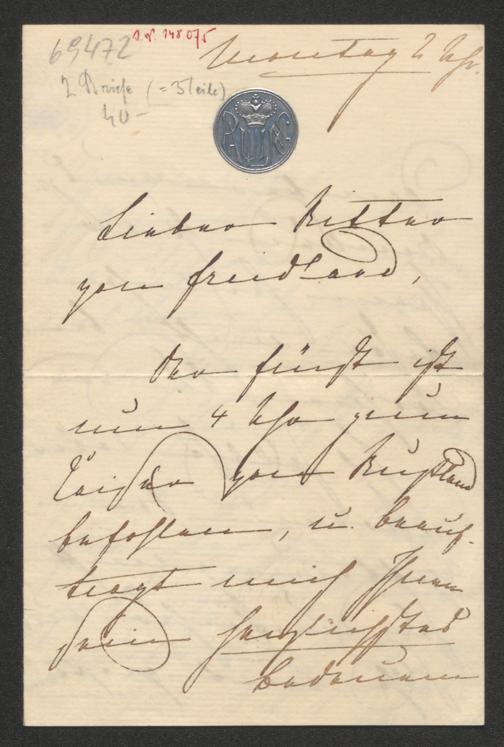 69472
I. N. 148.075
Montag 2 Uhr.
2 Briefe (= 3 Teile)
40 –
Lieber Ritter
von Friedland,
Der Fürst ist
um 4 Uhr zum
Kaiser von Rußland
befohlen, u. beauf-
tragt mich Ihnen
sein herzlichstes
Bedauern